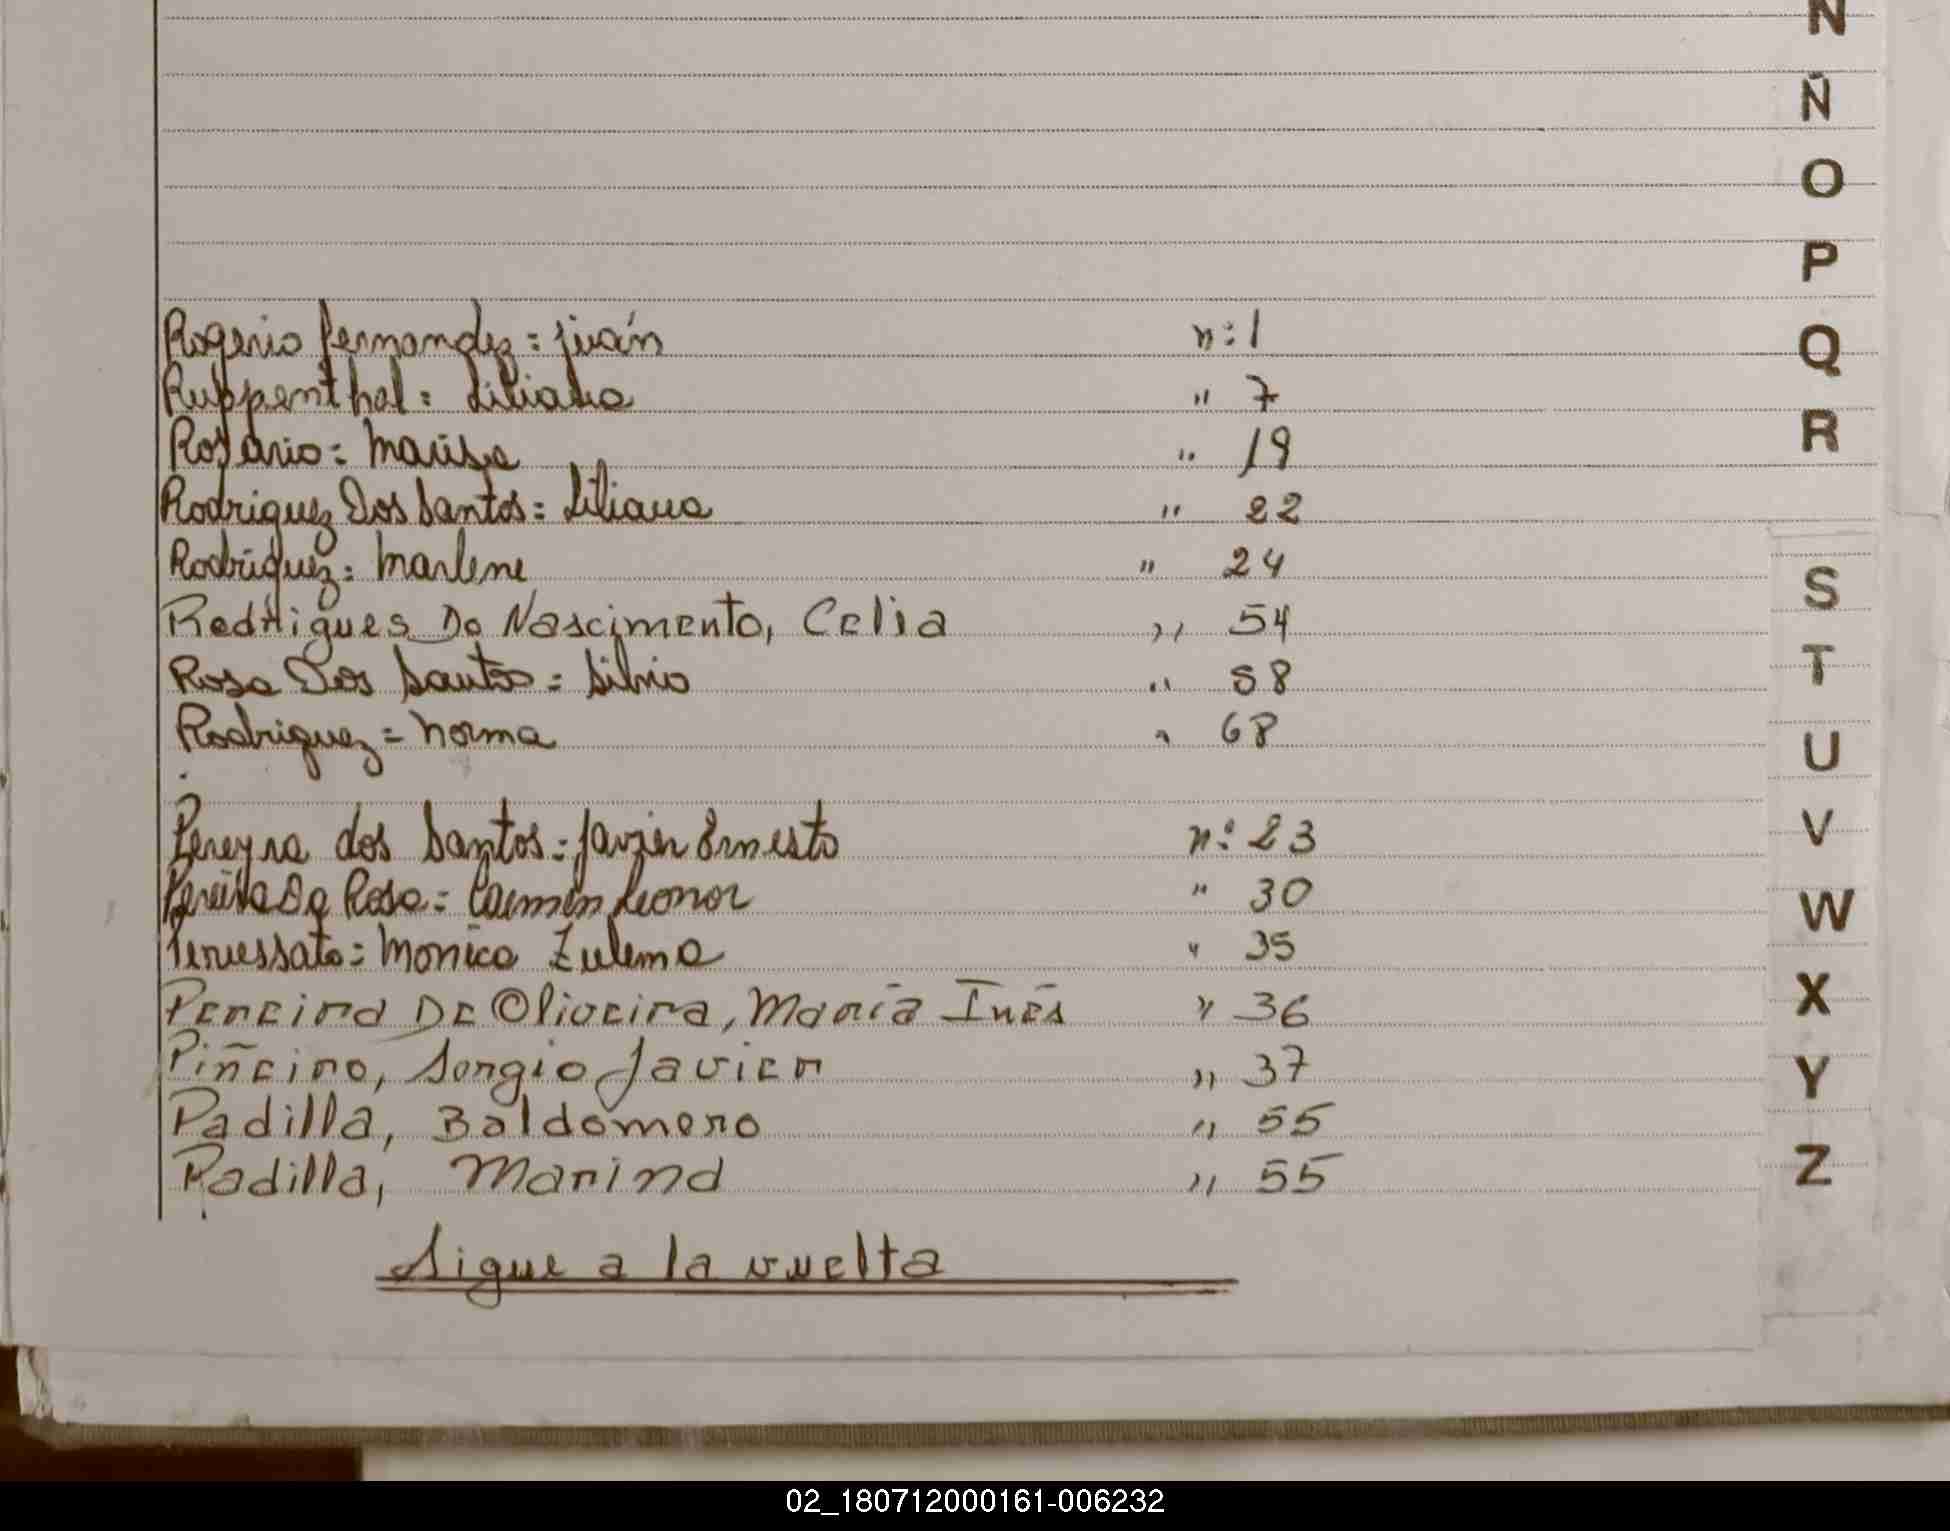 N
Ñ
O
P
Q
R
S
T
U
V
W
X
Y
Z
Rogerio Fernandez = Juán n: 1
Ruppenthal: Liliana " 7
Rosario = Marisa " 19
Rodriguez Dos Santos = Liliana " 22
Rodriguez: Marlene " 24
Rodrigues Do Nascimento, Celia " 54
Rosa Dos Santos = Silvio " 58
Rodriguez = Norma " 68
Pereyra dos Santos = Javier Ernesto n: 23
Pereira Da Rosa = Carmen Leonor " 30
Monica Zulema " 35
Pereira De Oliveira, María Inés " 36
Piñeiro, Sergio Javier " 37
Padilla, Baldomero " 55
Padilla, Marina " 55
Sigue a la vuelta
02_180712000161-006232